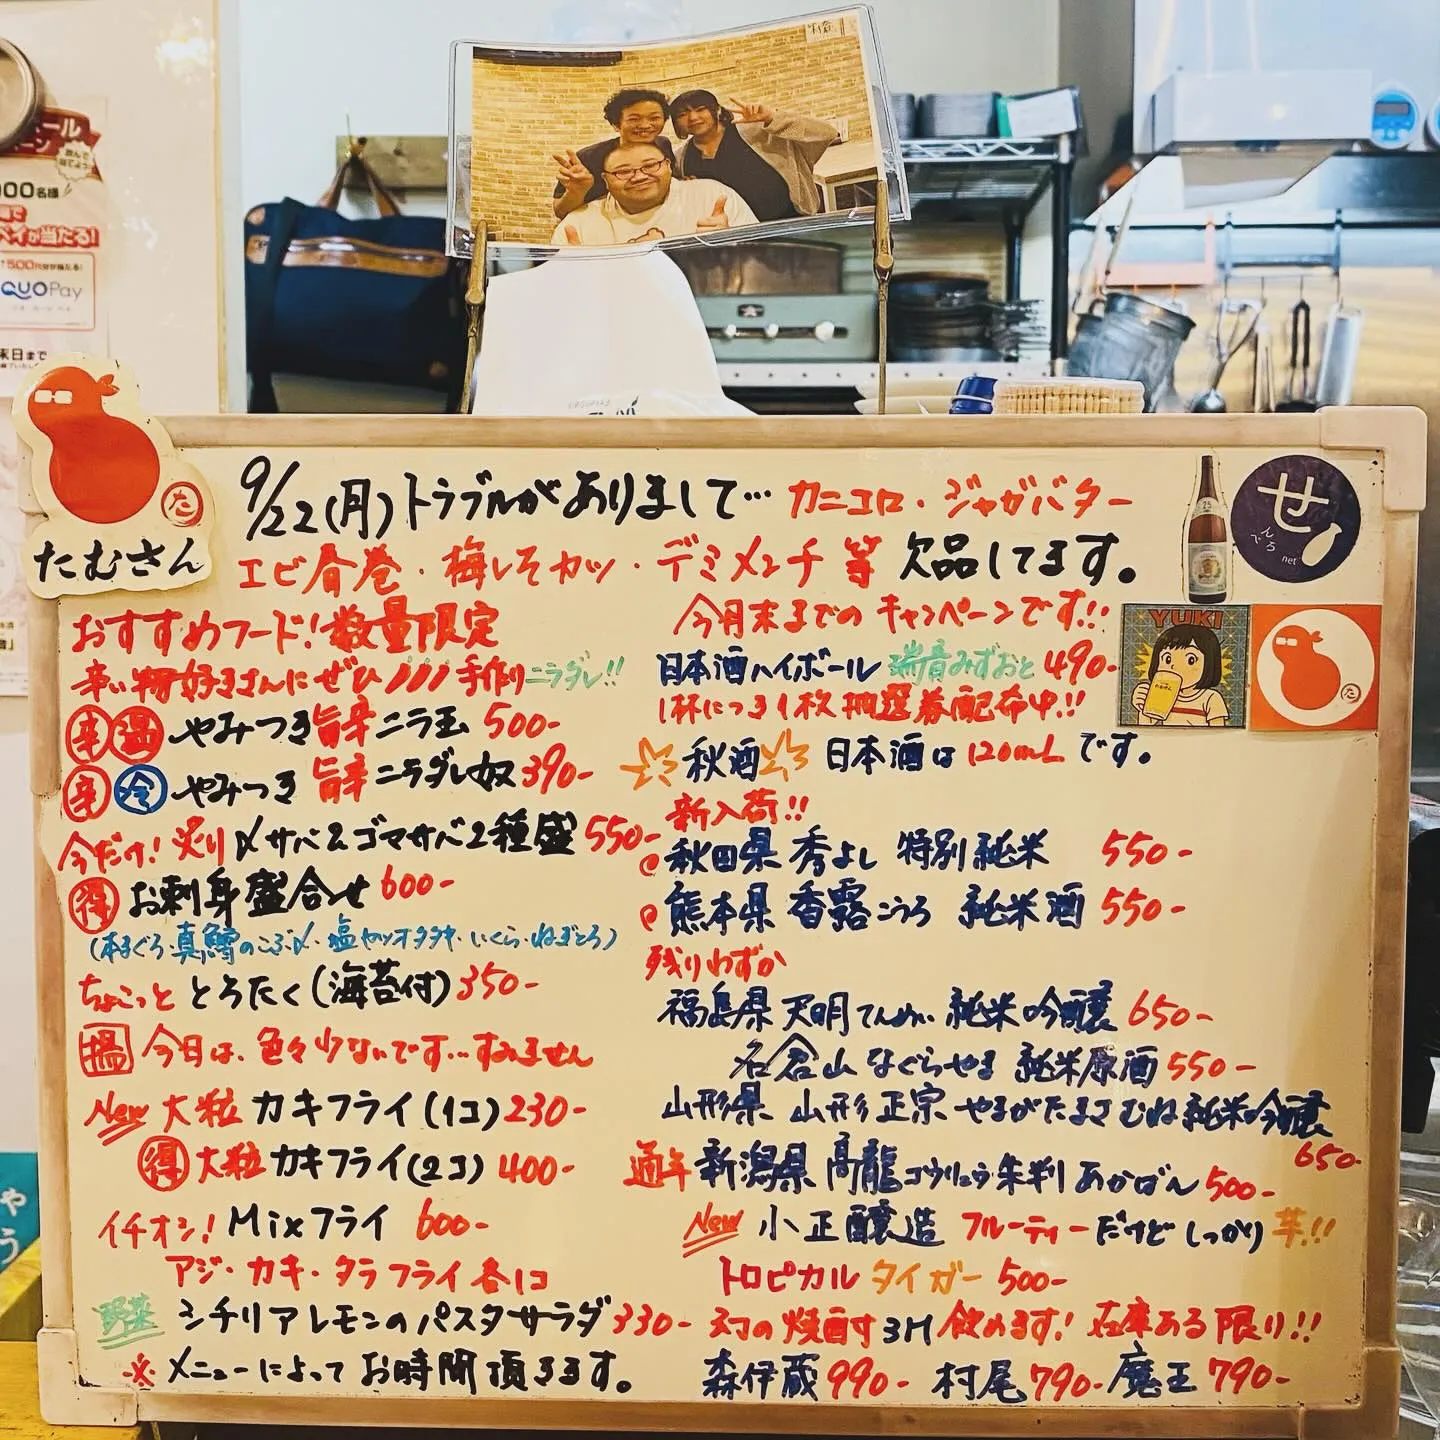 ール
ーン
000名様
で
ペイが当たる!
500円分が当たる!
QUOPay
末日まで
たむさん
た
9/22(月)トラブルがありまして… カニコロ・ジャガバター
エビ春巻・梅しそカツ・デミメンチ等 欠品してます。
せ
でんろ
net
YUKI
おすすめフード!数量限定
辛い物好きさんにぜひ!!! 手作りニラダレ!!
辛 温 やみつき旨辛ニラ玉 500-
辛 冷 やみつき 旨辛ニラダレ奴 390-
今だけ!炙り〆サバ&ゴマサバ2種盛 550-
得 お刺身盛合せ 600-
(本まぐろ・真鱈のこぶ〆・塩カツオタタキ・いくら・ねぎとろ)
ちょこっと とろたく(海苔付) 350-
今日は、色々少ないです…すみません
New 大粒 カキフライ(1コ) 230-
得 大粒 カキフライ(2コ) 400-
イチオシ! Mixフライ 600-
アジ・カキ・タラフライ各1コ
野菜 シチリアレモンのパスタサラダ 330-
※ メニューによってお時間頂きます。
今月末までの キャンペーンです!!
日本酒ハイボール 瑞音みずおと 490-
1杯につき1枚抽選券配布中!!
秋酒 日本酒は120mLです。
新入荷!!
秋田県 秀よし 特別純米 550-
熊本県 香露こうろ 純米酒 550-
残りわずか
福島県 天明てんめい 純米吟醸 650-
名倉山 なぐらやま 純米原酒 550-
山形県 山形正宗 やまがたまさむね 純米吟醸
650-
通年 新潟県 高龍コウリュウ 朱判 あかばん 500-
New 小正醸造 フルーティーだけどしっかり芋!!
トロピカルタイガー 500-
幻の焼酎3M飲めます!在庫ある限り!!
森伊蔵 990- 村尾 790- 魔王 790-